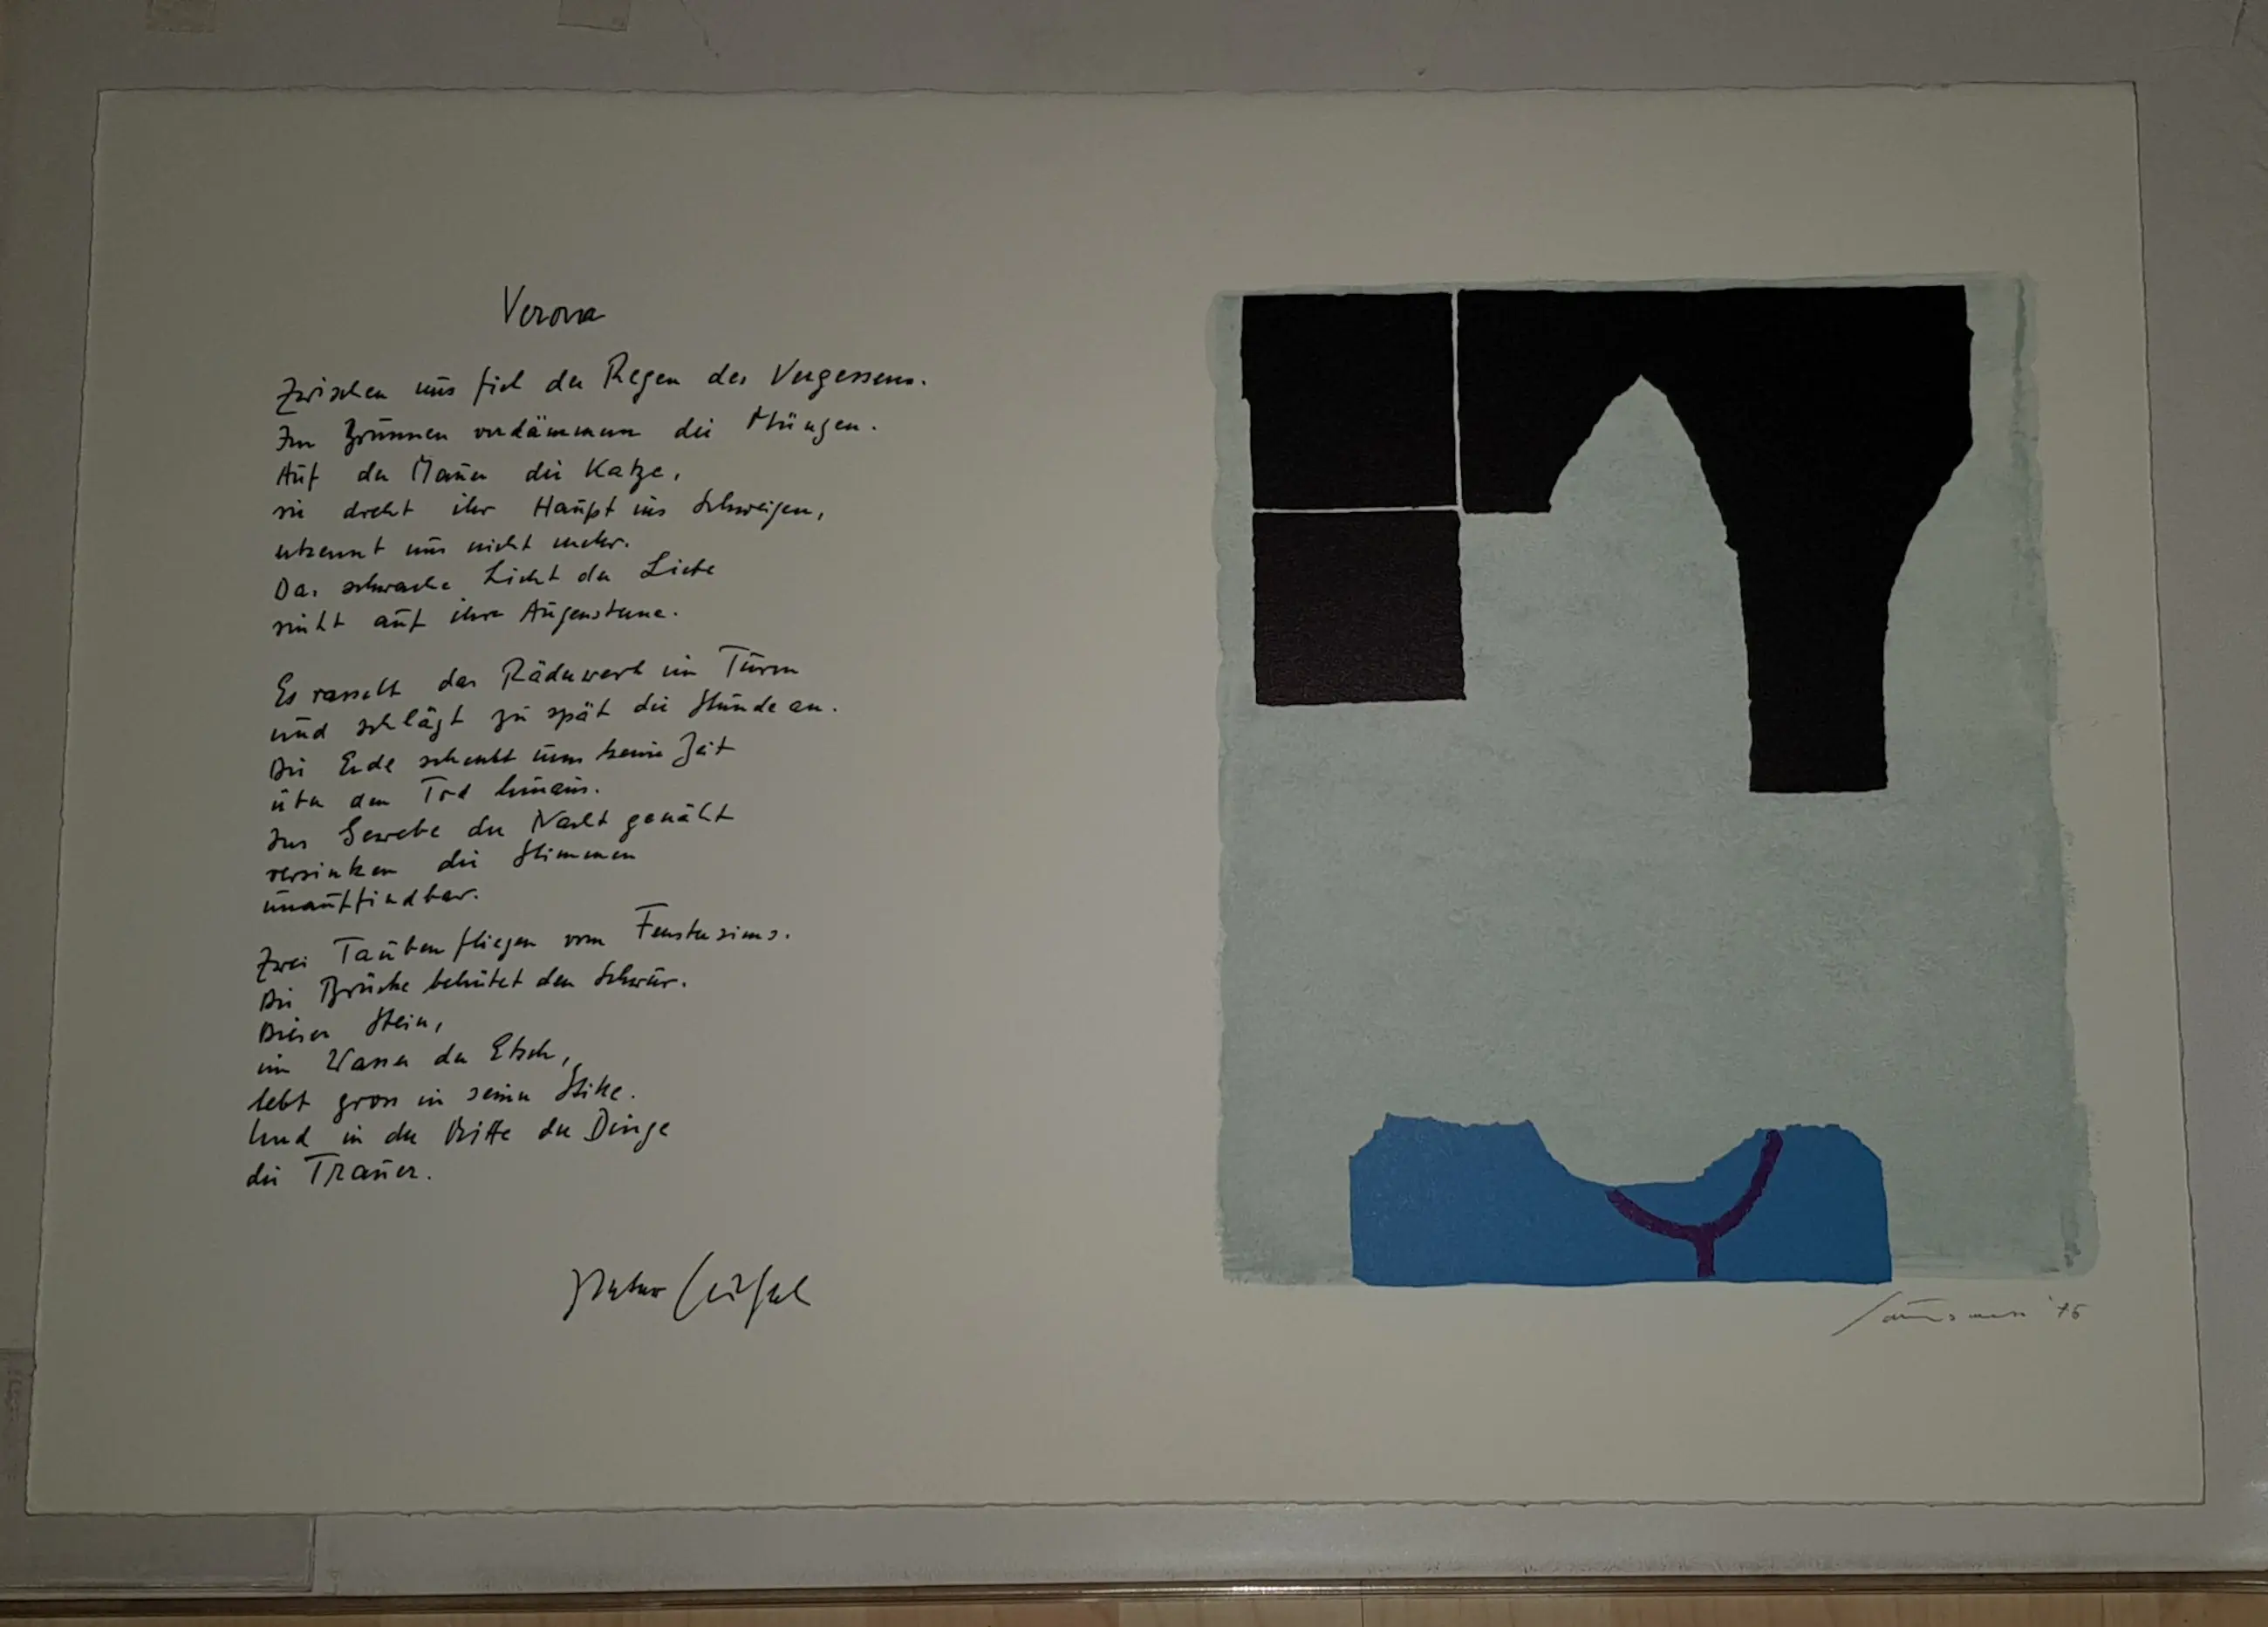 Verona
Zwischen uns fiel der Regen des Vergessens.
Im Brunnen verdämmern die Münzen.
Auf der Mauer die Katze,
sie dreht ihr Haupt ins Schweigen,
erkennt uns nicht mehr.
Das schwache Licht der Liebe
sinkt auf ihre Augensterne.
Es rasselt das Räderwerk im Turm
und schlägt zu spät die Stunde an.
Die Erde schenkt uns keine Zeit
über den Tod hinaus.
Ins Gewebe der Nacht genäht
versinken die Stimmen
unauffindbar.
Zwei Tauben fliegen vom Fenstersims.
Die Brücke behütet den Schwur.
Dieser Stein,
im Wasser der Etsch,
lebt gross in seiner Stille.
Und in der Mitte der Dinge
die Trauer.
'76